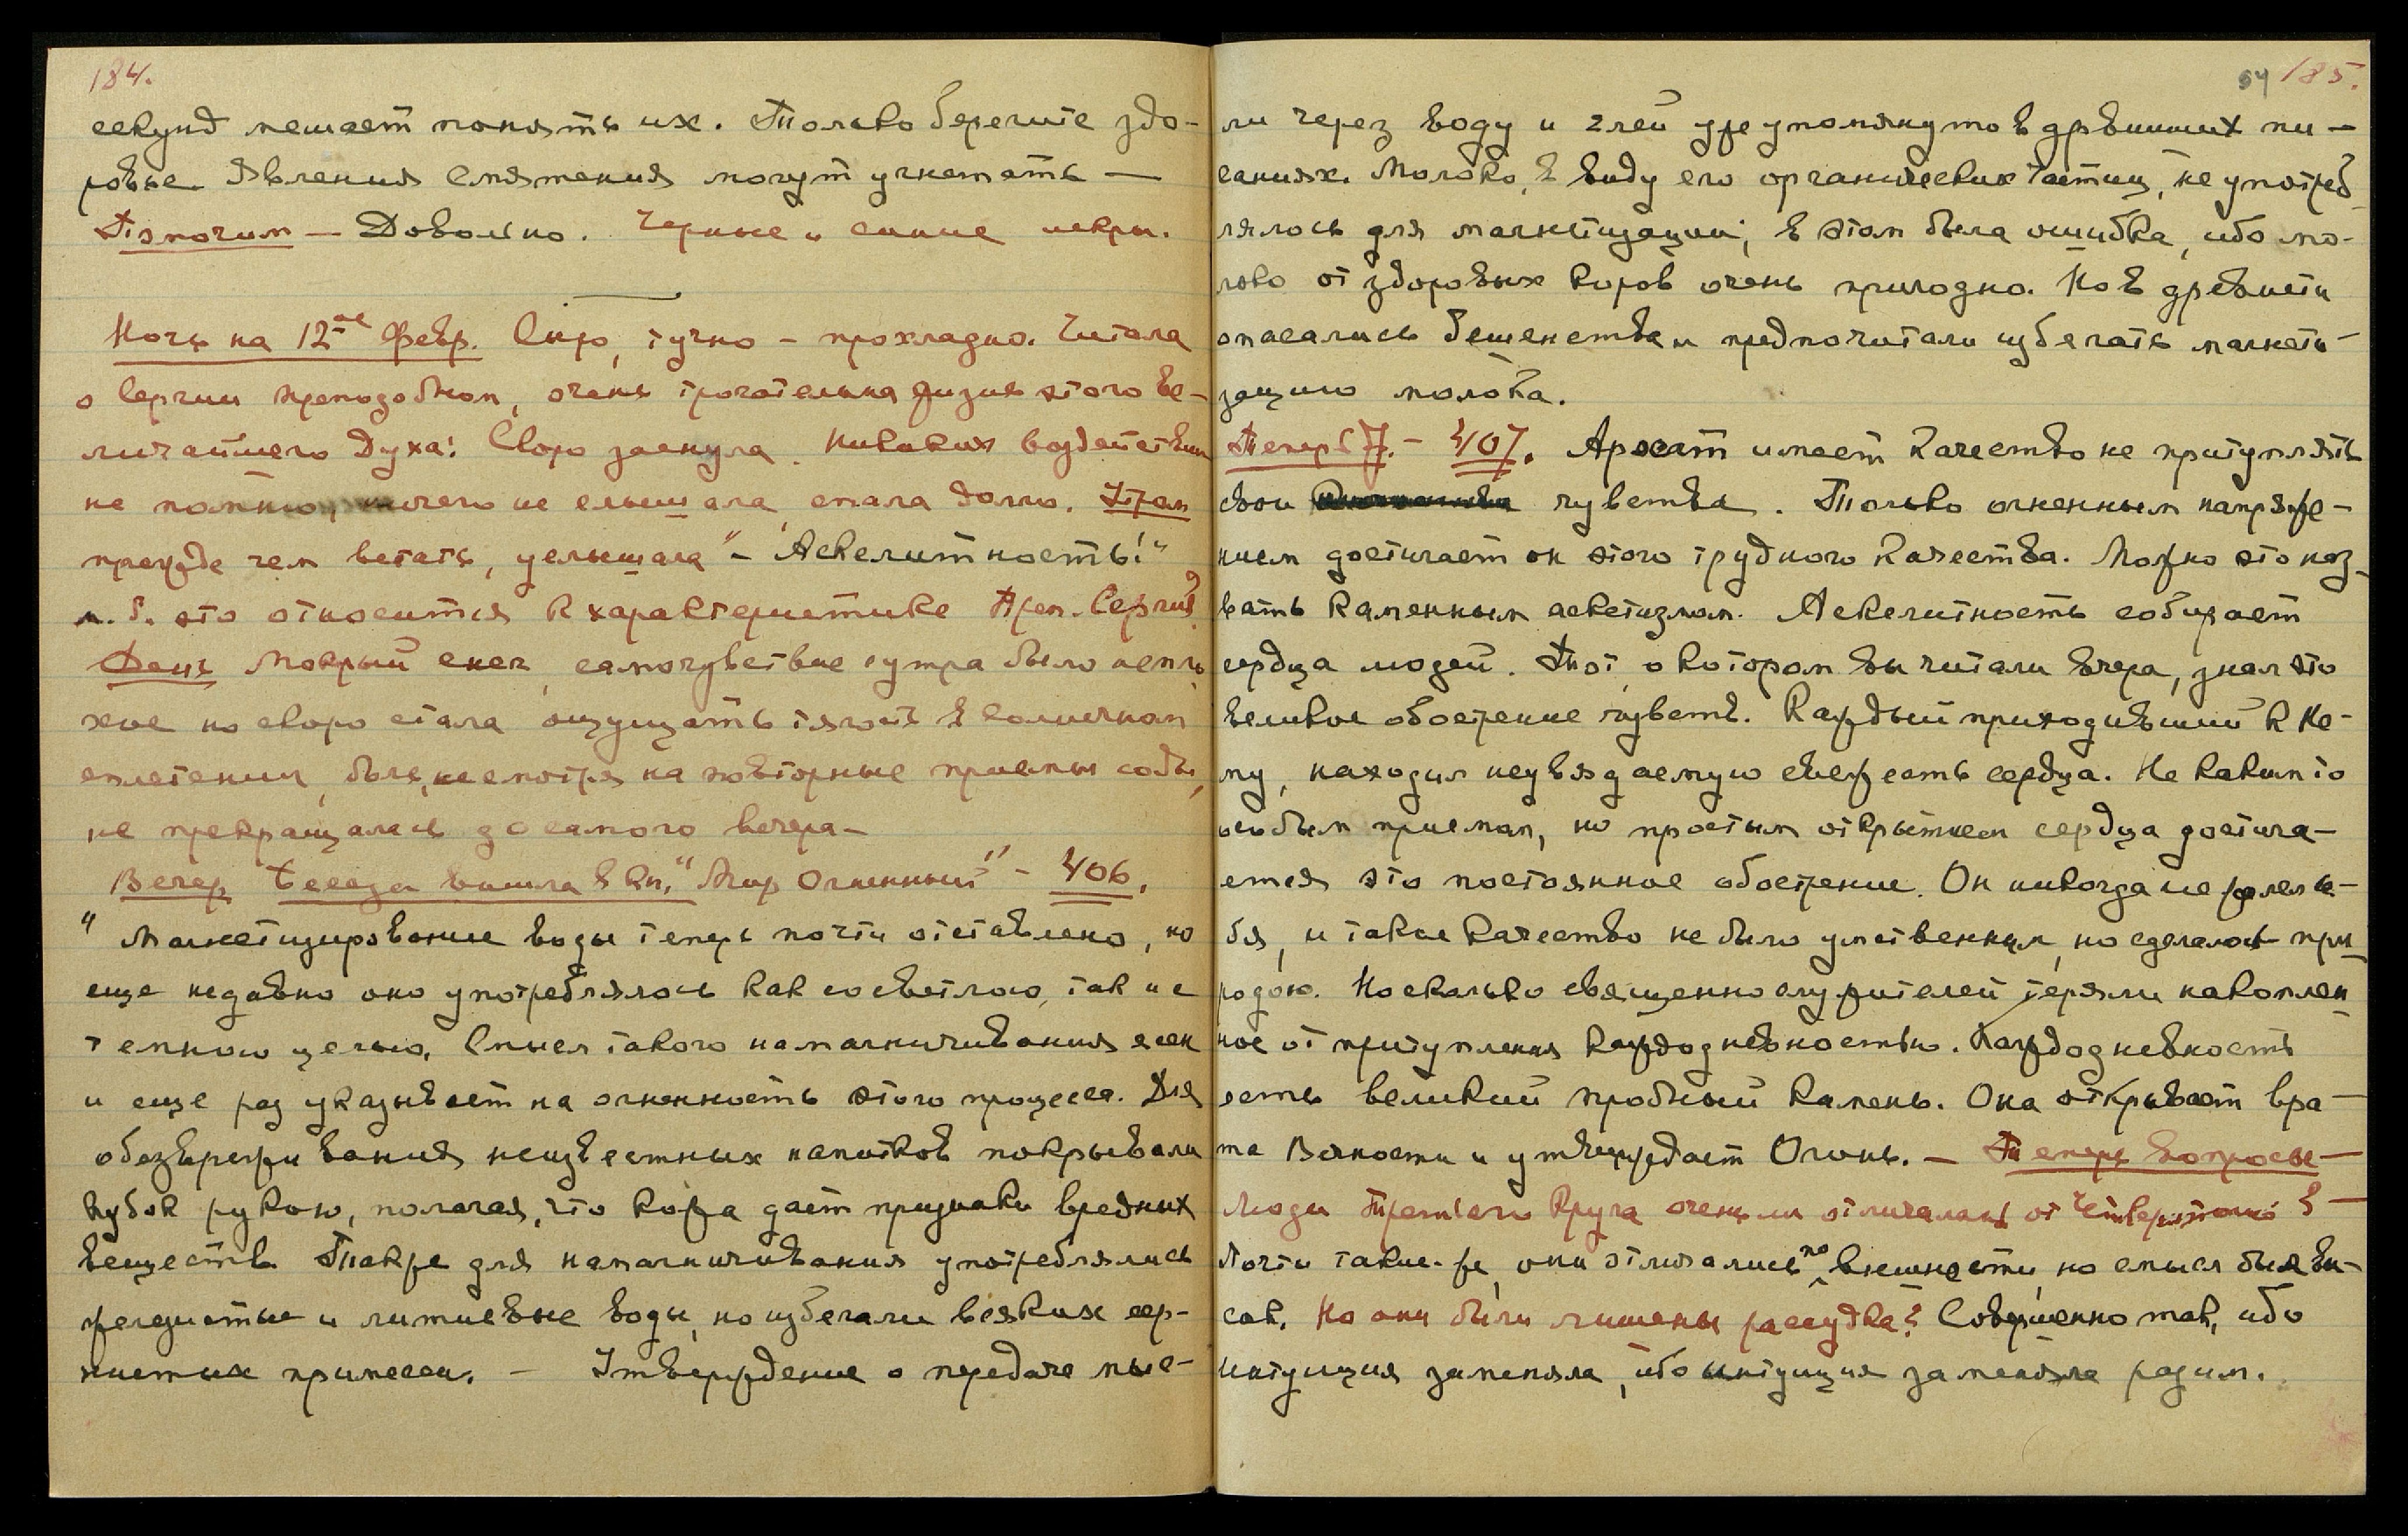 184.
секунд мешает понять их. Только берегите здо-
ровье. Явления смятения могут угнетать —
Поможем — Довольно. Черные и синие искры.
Ночь на 12ое Февр. Сыро, тучно – прохладно. Читала
о Сергии Преподобном, очень трогательна жизнь этого Ве-
личайшего Духа! Скоро заснула. Никаких воздействий
не помню, ничего не слышала, спала долго. Утром
прежде чем встать, услышала "– Аскелитность!"
м. б. это относится к характеристике Преп. Сергия
День Мокрый снег, самочувствие с утра было непло
хое но скоро стала ощущать тягость в Солнечном
сплетении, боль, несмотря на повторные приемы соды,
не прекращалась до самого вечера –
Вечер Беседа вошла в Кн. "Мир Огненный" – 406.
" Магнетизирование воды теперь почти отставлено, но
еще недавно оно употреблялось как со светлою, так и с
темною целью. Смысл такого намагничивания ясен
и еще раз указывает на огненность этого процесса. Для
обезвреживания неизвестных напитков покрывали
кубок рукою, полагая, что кожа дает признаки вредных
веществ. Также для намагничивания употреблялись
железистые и литиевые воды, но избегали всяких сер-
нистых примесей. – Утверждение о передаче мыс-
54 185.
ли через воду и елей уже упомянуто в древних пи-
саниях. Молоко, в виду его органических частиц, не употреб
лялось для магнетизации; в этом была ошибка, ибо мо-
локо от здоровых коров очень пригодно. Но в древности
опасались бешенства и предпочитали избегать магнети-
зацию молока.
Теперь 7. – 407. Архат имеет качество не притуплять
свои чувства. Только огненным напряже-
нием достигает он этого трудного качества. Можно это наз-
вать каменным аскетизмом. Аскелитность собирает
сердца людей. Тот, о котором вы читали вчера, знал это
великое обострение чувств. Каждый приходивший к Не-
му, находил неувядаемую свежесть сердца. Не каким то
особым приемом, но простым открытием сердца достига-
ется это постоянное обострение. Он никогда не жалел се-
бя, и такое качество не было умственным, но сделалось при
родою. Но сколько священнослужителей теряли накоплен
ное от притупления каждодневностью. Каждодневность
есть великий пробный камень. Она открывает вра-
та Вечности и утверждает Огонь. – Теперь вопросы —
Люди Третьего Круга очень ли отличались от Четвертого? —
Почти такие-же, они отличались по внешности, но смысл был вы-
сок. Но они были лишены рассудка? Совершенно так, ибо
интуиция заменяла, ибо интуиция заменяла разум.